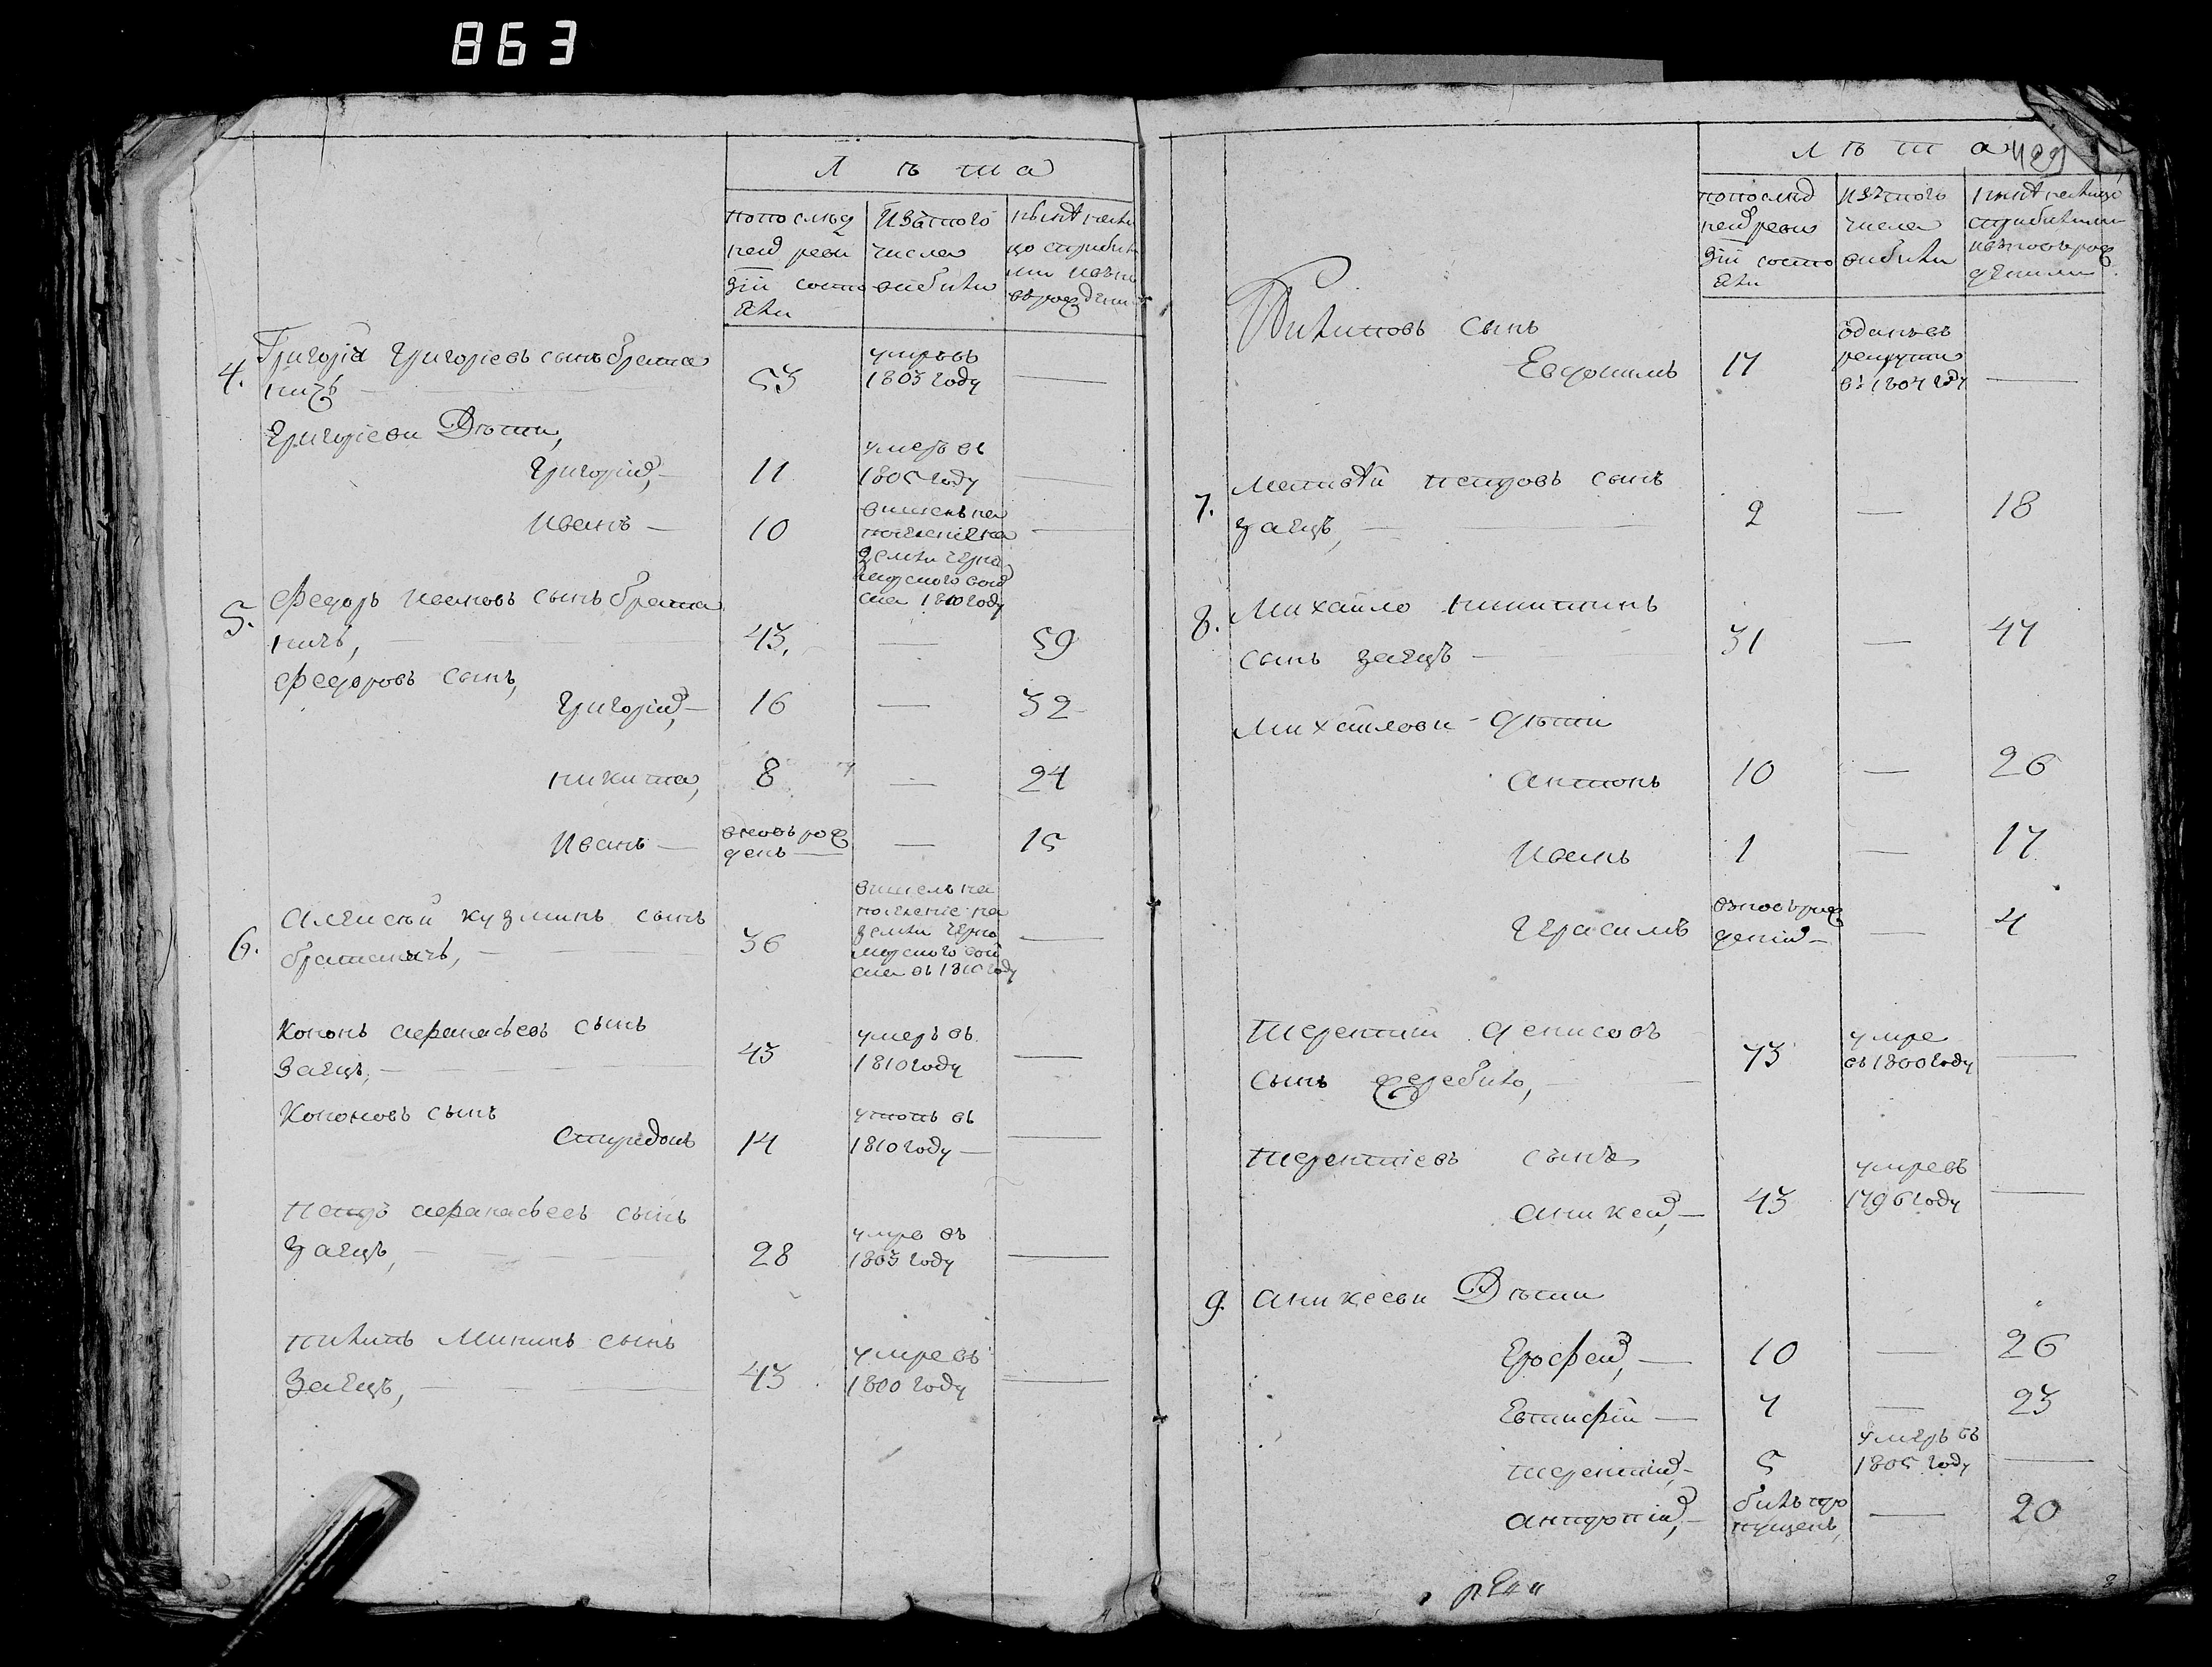 863
Лѣта
попослѣд
ней реви
зіи состо
яли
Изътого
числа
выбыли
4. Григорій Григоріевъ сынъ братa
ничъ — 53 умръвъ
1803 году —
Григоріевы Дѣти,
Григорій, — 11 умеръ въ
1805 году —
Иванъ — 10 вишелъ на
поселеніе на
земли черно
морского вой
ска 1810 году —
5. Федоръ Ивановъ сынъ брата
ничъ, — 43, — 59
Федоровъ сынъ,
Григорій, — 16 — 32
никита, 8 — 24
Иванъ — вновь рож
денъ — — 15
6. Алексѣй кузминъ сынъ
братаничъ, — 36 вишелъ на
поселеніе на
земли черно
морского вой
ска въ 1810 году —
Кононъ афанасьевъ сынъ
Заецъ, — 43 умеръ въ
1810 году —
Кононовъ сынъ
Спиридонъ 14 утопъ въ
1810 году — —
петръ афанасьевъ сынъ
Заецъ, — 28 умре въ
1803 году —
пилипъ Мининъ сынъ
Заецъ, — 43 умре въ
1800 году —
Лѣта 429
попослѣд
ней реви
зіи состо
яли
Изътого
числа
вибили
Пилиповъ сынъ
Евдокимъ 17 отданъ въ
рекруты
въ 1804 году —
7. Матвѣй петровъ сынъ
заецъ, — 2 — 18
8. Михайло никитинъ
сынъ заецъ — 31 — 47
Михайлови дѣти
антонъ 10 — 26
Иванъ 1 — 17
Герасимъ вновь рож
деній — — 4
Терентій денисовъ
сынъ жеребило, — 73 умре
въ 1800 году —
Терентіевъ сынъ
аникей, — 43 умре въ
1796 году —
9. аникеевы Дѣти
Ерофей, — 10 — 26
Евтифій — 7 — 23
терентій, — 5 умеръ въ
1805 году —
антропій, — билъ про
пущенъ, — 20